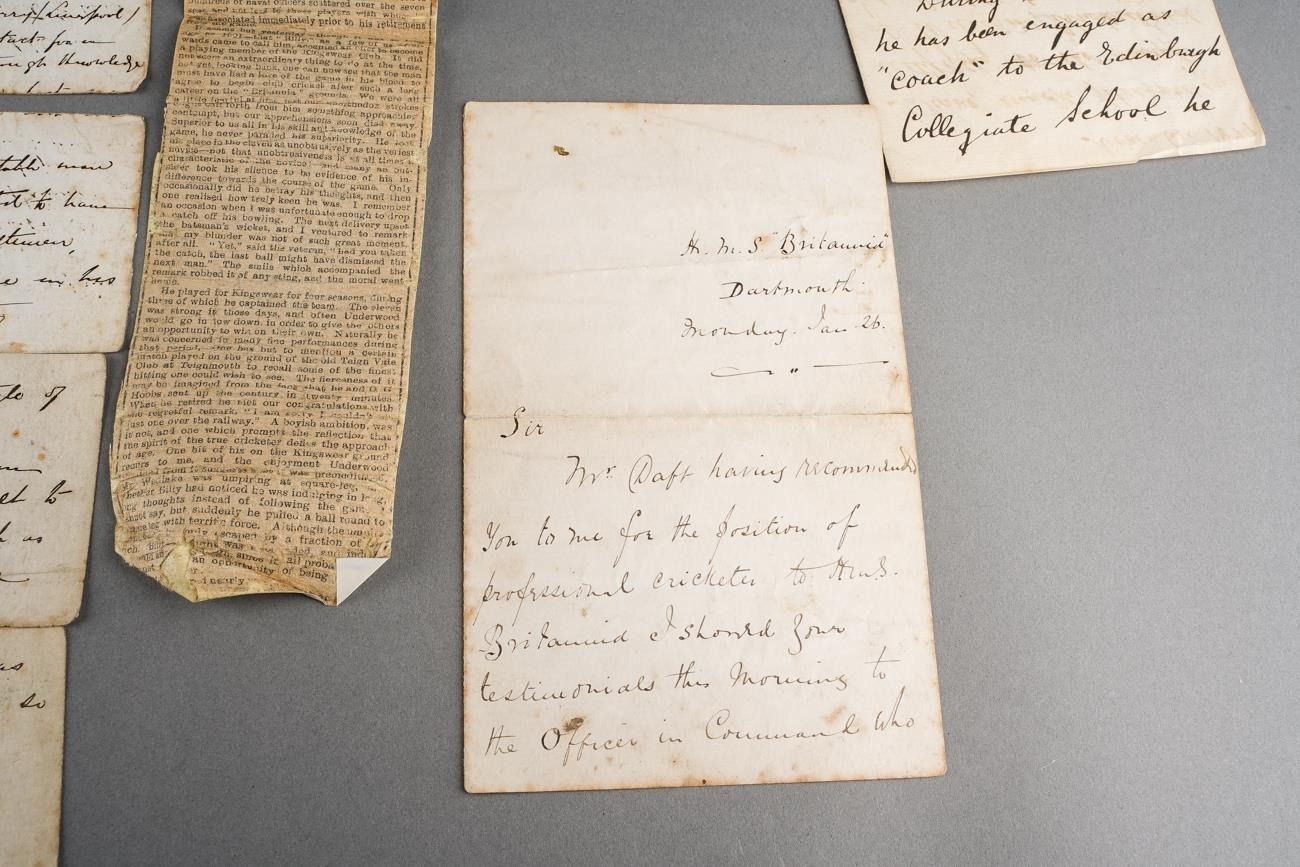 ough Knowledge
table man
to have
le of
et to
h as
as
so
hundreds of naval officers scattered over the seven
associated immediately prior to his retirement
wards came to call him, accepted an offer to become
a playing member of the Kingswear Club. It did
not seem an extraordinary thing to do at the time,
yet, looking back, one can now see that the man
must have had a love of the game in his blood to
agree to begin club cricket after such a long
career on the "Britannia" grounds. We were all
a little fearful at first lest our unorthodox strokes
might call forth from him something approaching
contempt, but our apprehensions soon died away.
Superior to us all in his skill and knowledge of the
game, he never paraded his superiority. He took
his place in the eleven as unobtrusively as the veriest
novice—not that unobtrusiveness is at all times a
characteristic of the novice! and many an out-
sider took his silence to be evidence of his in-
difference towards the course of the game. Only
occasionally did he betray his thoughts, and then
one realised how truly keen he was. I remember
an occasion when I was unfortunate enough to drop
a catch off his bowling. The next delivery upset
the batsman's wicket, and I ventured to remark
my blunder was not of such great moment,
after all. "Yet," said the veteran, "had you taken
the catch, the last ball might have dismissed the
next man." The smile which accompanied the
remark robbed it of any sting, and the moral went
home.
He played for Kingswear for four seasons, during
three of which he captained the team. The eleven
was strong in those days, and often Underwood
would go in low down, in order to give the others
an opportunity to win on their own. Naturally he
was concerned in many fine performances during
that period. One has but to mention a certain
match played on the ground of the old Teign Vale
Club at Teignmouth to recall some of the finest
hitting one could wish to see. The fierceness of it
may be imagined from the fact that he and O. G.
Hobbs sent up the century in twenty minutes.
When he retired he met our congratulations with
the regretful remark, "I am sorry I couldn't
just one over the railway." A boyish ambition, was
it not, and one which prompts the reflection that
the spirit of the true cricketer defies the approach
of age. One hit of his on the Kingswear ground
recurs to me, and the enjoyment Underwood
Wedlake was umpiring at square-leg.
whether Billy had noticed he was indulging in
thoughts instead of following the game
say, but suddenly he pulled a ball round to
leg with terrific force. Although the
escaped by a fraction of
since in all proba
an opportunity of being
nearly
H. M. S "Britannia"
Dartmouth.
Monday. Jan 26.
Sir
Mr. Daft having recommended
You to me for the position of
professional cricketer to H.M.S.
Britannia I showed your
testimonials this Morning to
the Officer in Command who
During
he has been engaged as
"coach" to the Edinburgh
Collegiate School he